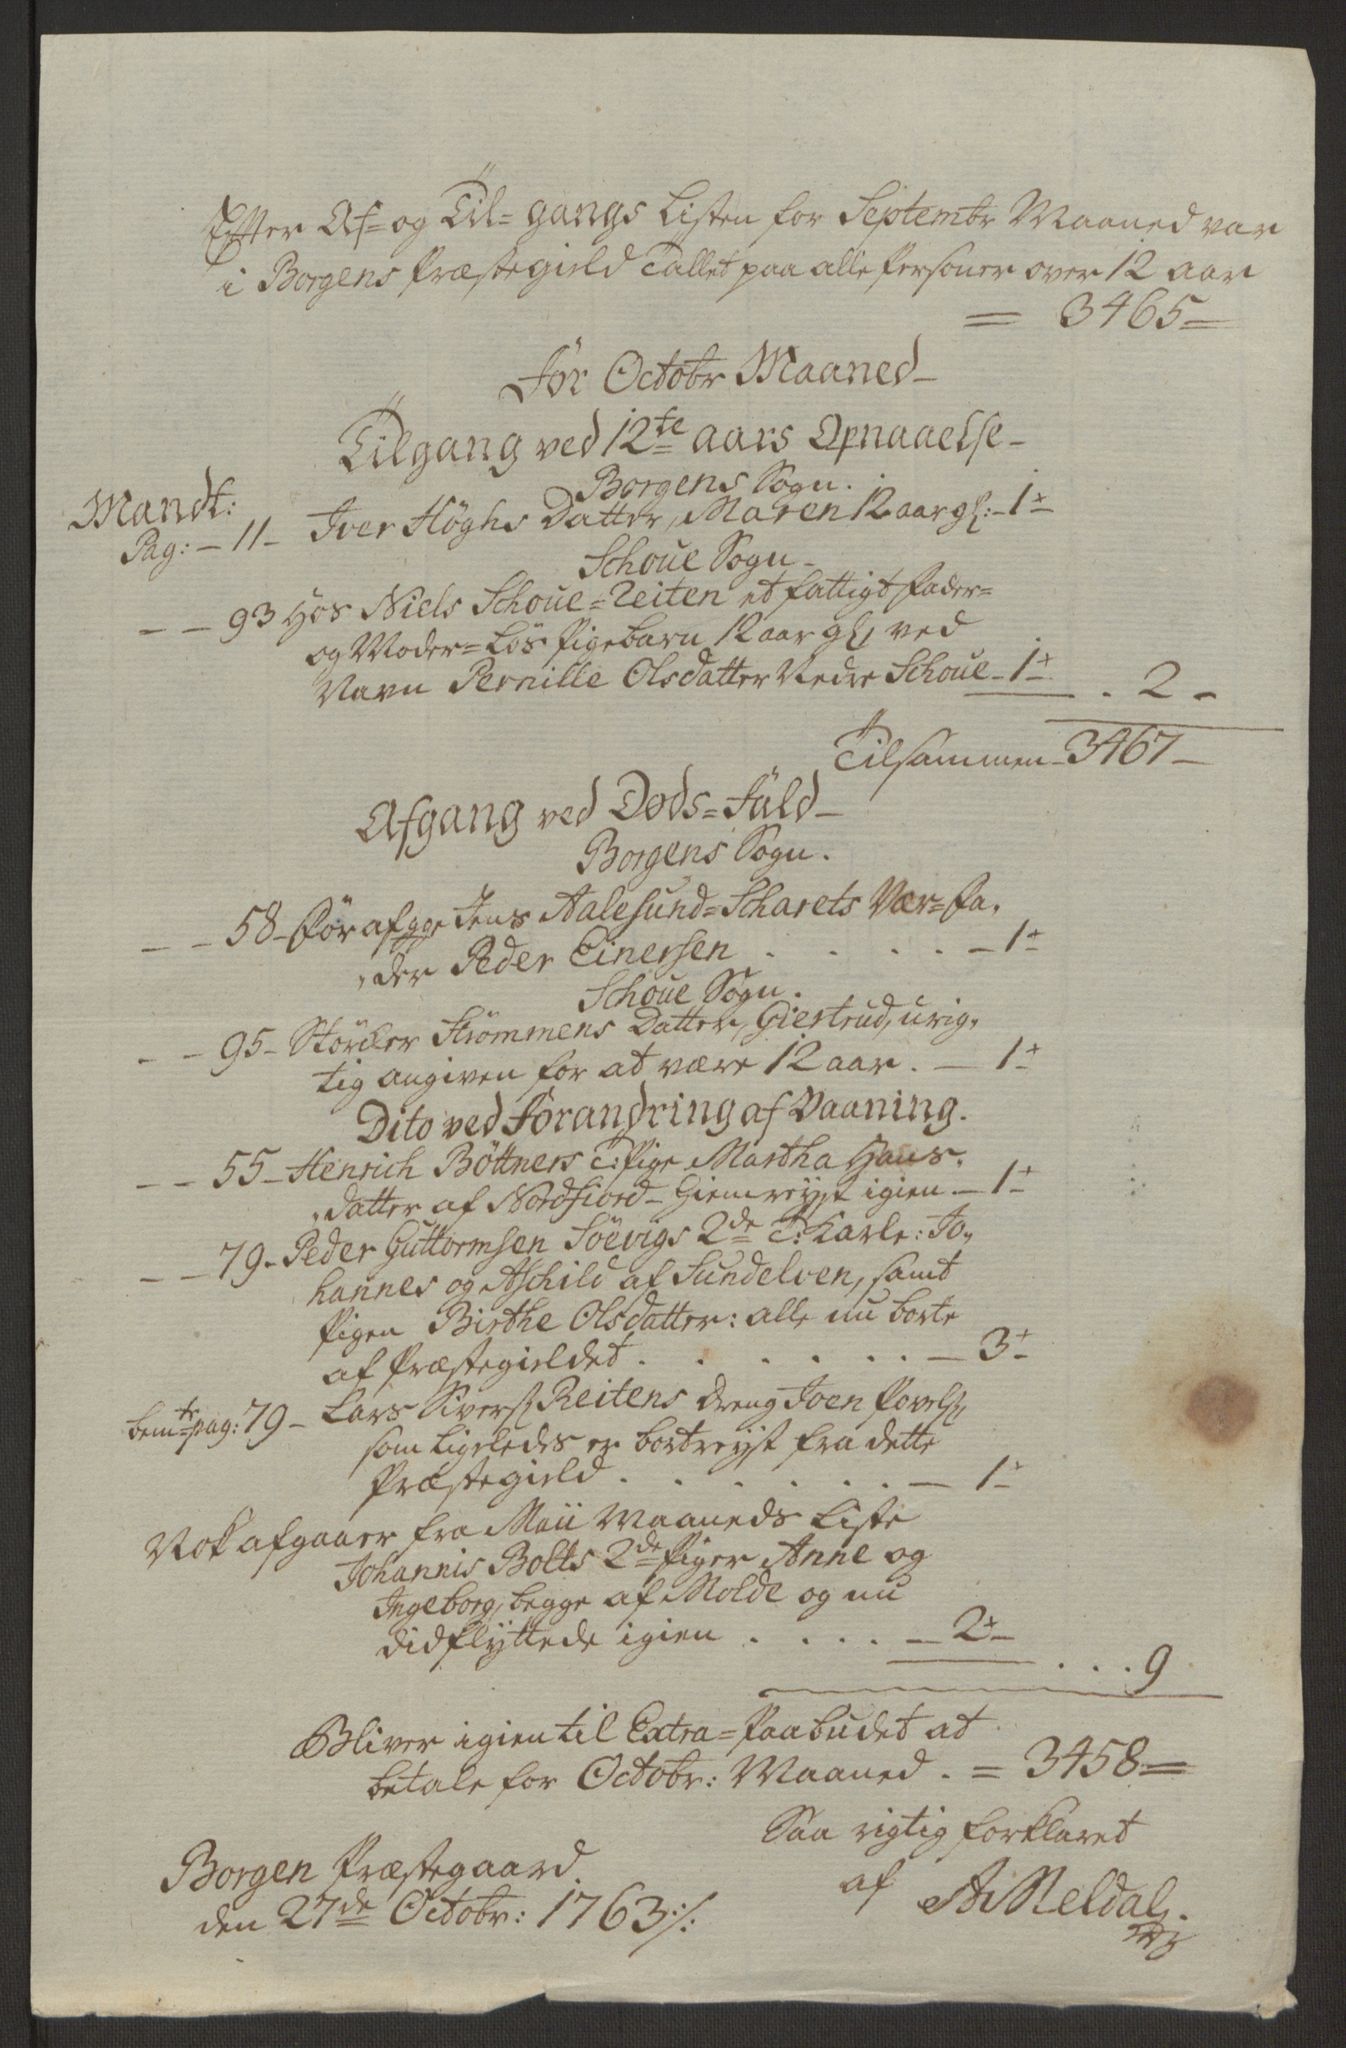 Efter Af= og Til=gangs Listen for Septembr Maaned var
i Borgens Præstegield Tallet paa alle Personer over 12 aar
= 3465=
För Octobr Maaned-
Tilgang ved 12te aars Opnaaelse-
Borgens Sogn.
Mandt:
Pag: - 11- Iver Höghs Datter, Maren 12 aar gl: - 1-
Schoue Sogn-
- - 93 Hos Niels Schoue=Reiten et fattigt fader=
og Moder=Lös Pigebarn 12 aar gl ved
Navn Pernille Olsdatter Nedre Schoue - 1-
. 2 -
Tilsammen - 3467-
Afgang ved Döds=Fald-
Borgens Sogn.
- - 58- För afgge Jens Aalesund=Scharets Vær=Fa,
,der Peder Einersen . . . . - 1-
Schoue Sogn.
- - 95- Störcker Strömmens Datter, Giertrud, urig,
tig angiven for at være 12 aar. - 1-
Dito ved Forandring af Vaaning.
- - 55- Henrich Böttners T: Pige Martha Hans,
,datter af Nordfiord- Hiemreyst igien. - 1-
- - 79- Peder Guttormsen Söevigs 2de T: Karle: Jo,,
hannes og Aschild af Sundelven, samt
Pigen Birthe Olsdatter: alle nu borte
af Præstegieldet . . . . . . - 3-
bemte pag: 79- Lars Sivers Reitens dreng Joen Povels,
som ligeledes er bortreyst fra dette
Præstegield . . . . . . - 1-
Nok afgaaer fra Maii Maaneds Liste
Johannis Bolts 2de Piger Anne og
Ingeborg, begge af Molde og nu
didflyttede igien . . . . - 2-
. . . 9
Bliver igien til Extra=Paabudet at
betale for Octobr: Maaned. = 3458=
Saa rigtig forklaret
af A Meldal
Borgen Præstegaard.
den 27de Octobr: 1763 ./.